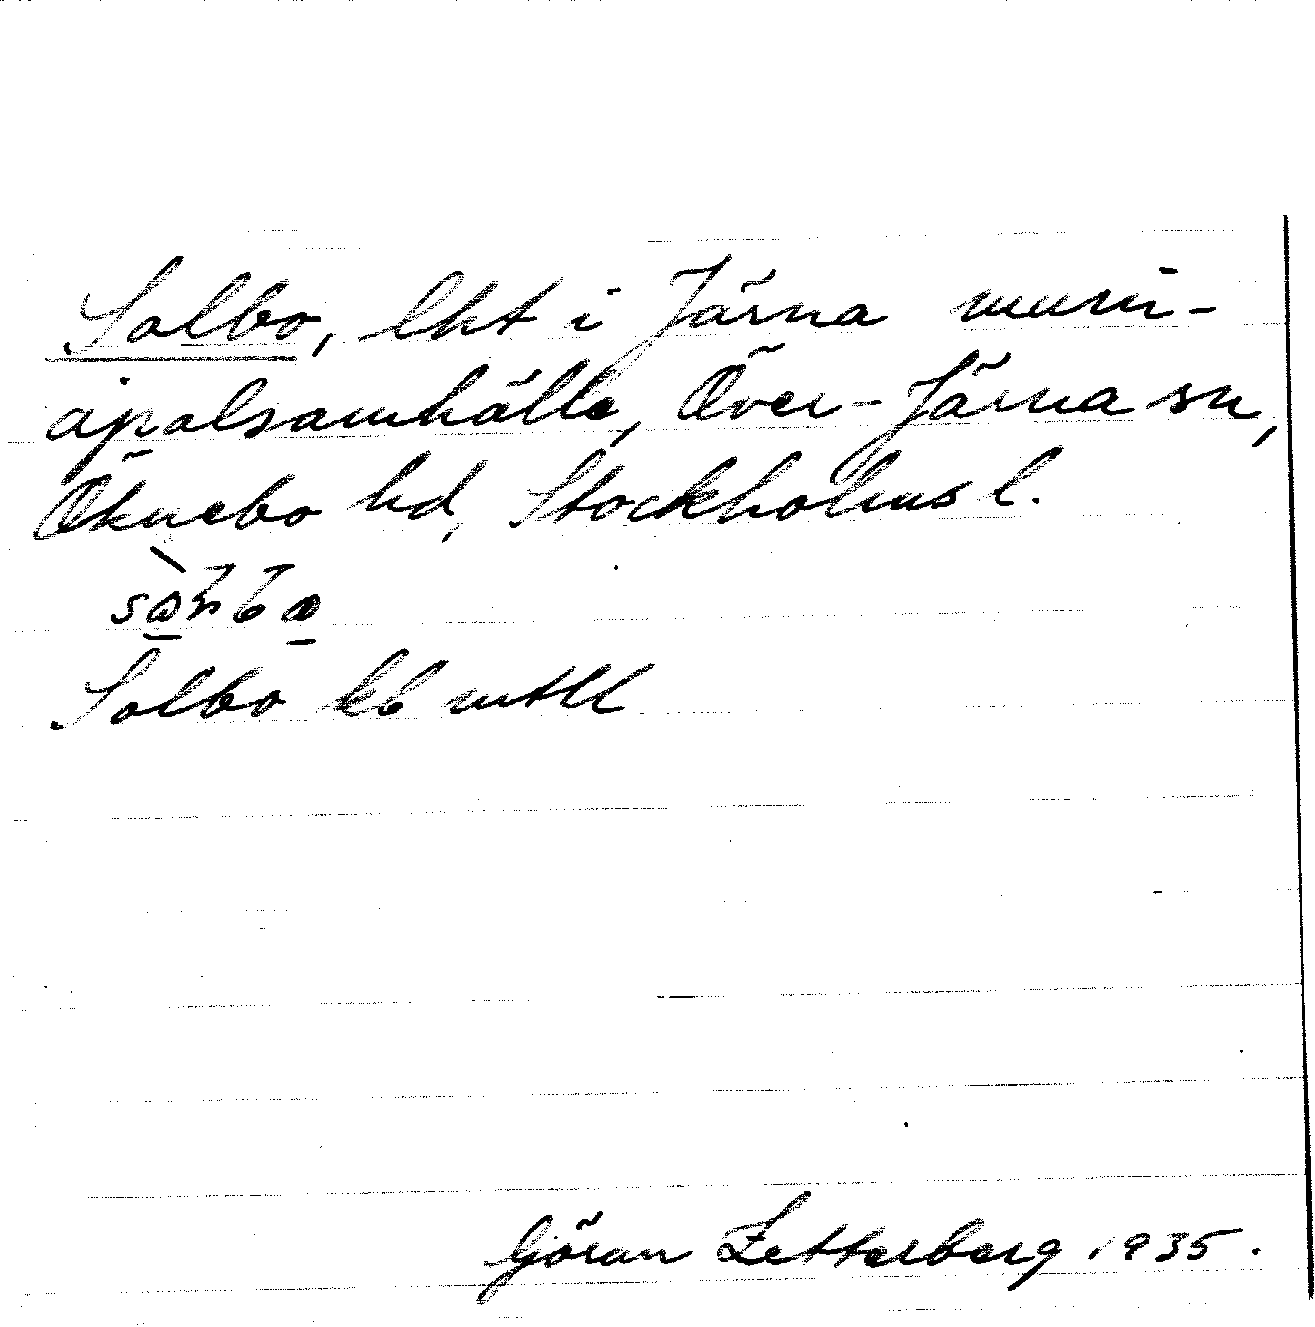 Solbo, lht i Järna muni-
cipalsamhälle, Över-Järna sn,
Öknebo hd, Stockholms l.
Solbo kb mtll
Göran Zetterberg 1935.